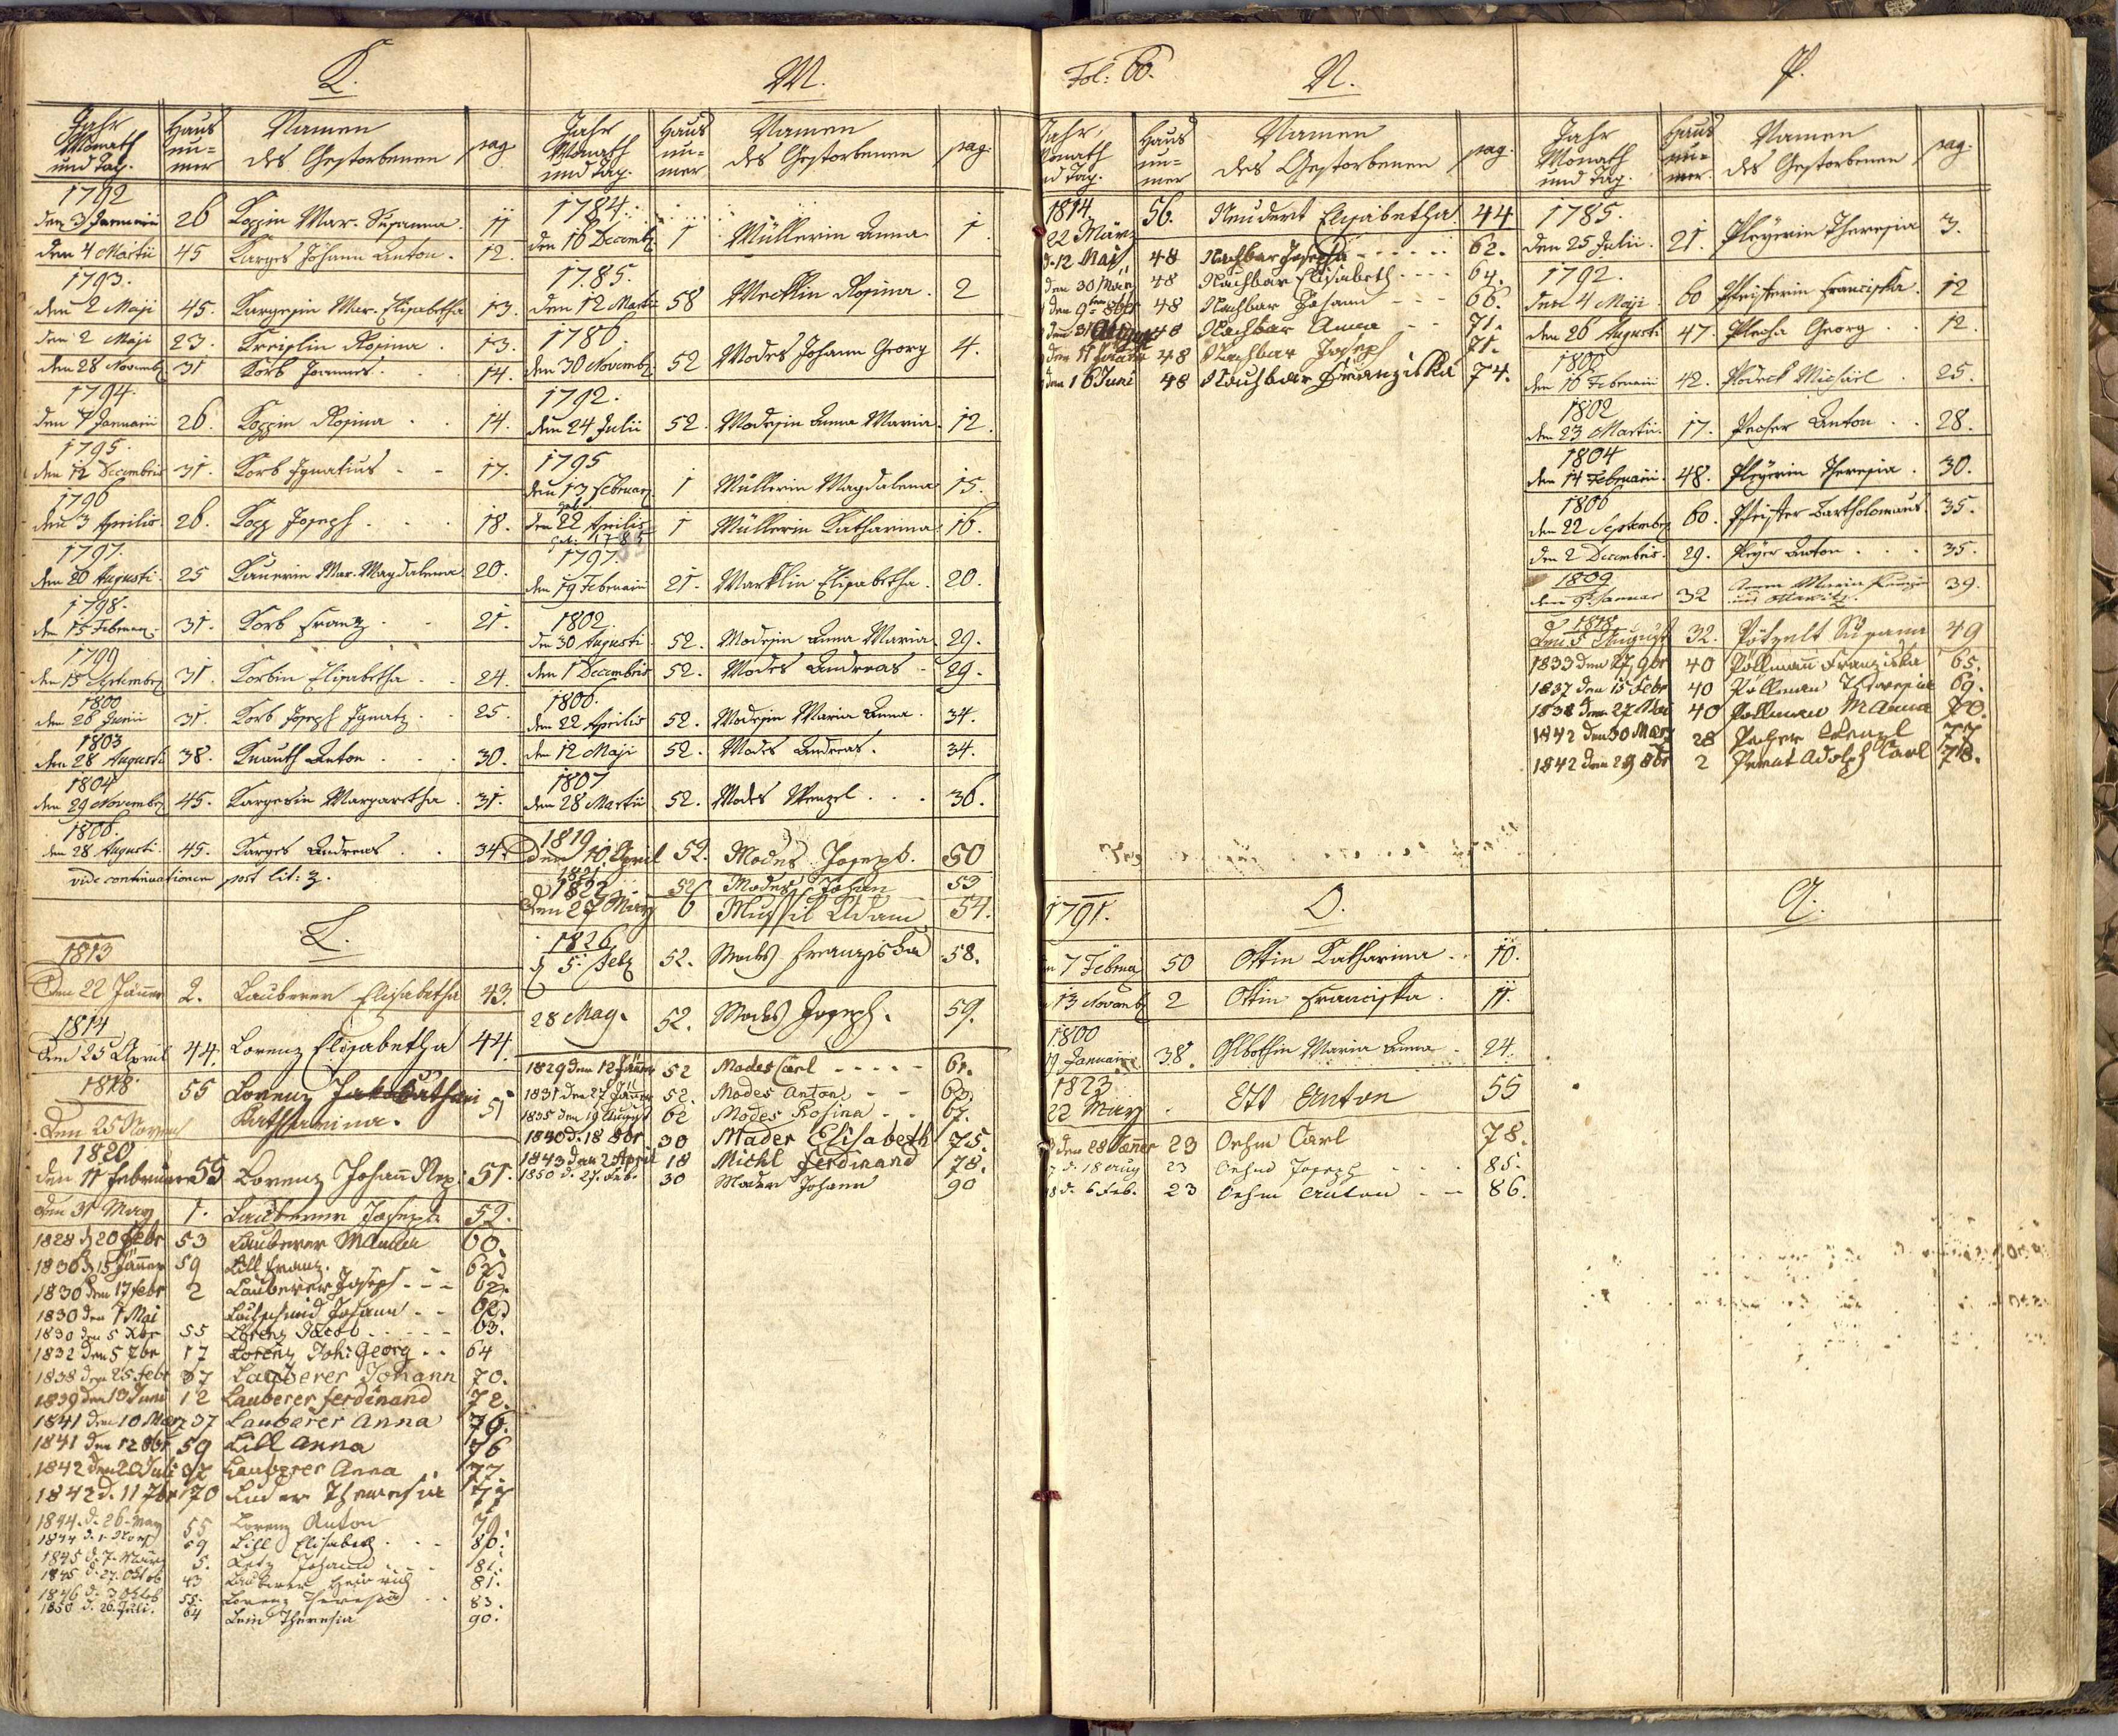 K.
Jahr Monath und Tag. Haus nu= mer Namen des Gestorbenen pag
1792
den 3 Januarii 26 Koppin Mar. Susanna. 11
den 4 Martii 45 Karges Johann Anton. 12.
1793.
den 2 Maji 45. Kargesin Mar. Elisabetha 13.
den 2 Maji 23. Rosina . 13.
den 28 Novemb. 31 Korb Joannes. 14.
1794.
den 7 Januarii 26. Koppin Rosina . . 14.
1795.
den 12 Decembris 31. Korb Ignatius - - 17.
1796
den 3 Aprilis 26. Kopp Joseph . . . 18.
1797.
den 20 Augusti 25 Mar. Magdalena 20.
1798.
den 15 Februar. 31. Korb Franz . - 21.
1799
den 15 Septembr. 31. Korbin Elisabetha . . 24.
1800
den 26 Junii 31. Korb Joseph Ignatz . . 25.
1803
den 28 Augusti 38. Knauth Anton . . . 30.
1804
den 29 Novembr. 45. Kargesin Margaretha . 31.
1806.
den 28 Augusti 45. Karges Andreas . . 34.
vide continuationem post lit: Z.
L.
1813
Den 22 Jäner 2. Lauberer Elisabetha 43.
1814
Den 25 April 44. Lorenz Elisabetha 44.
1818. 55 Lorenz
Den 25 Novem Katharina. 51
1820
den 11 Februar 55 Lorenz Johan Nep: 51.
Den 31 May 1. Lauberer Joseph 52.
1828 d 20 Febr 53 Lauberer MAnna 60.
1830 d 15 Jänner 59 Lill Franz. 62
1830 den 17 Febr 2 Lauberer Joseph - - - 62.
1830 den 7 Mai Johann - - 62
1830 den 5 Xbr 55 Lorenz Jacob - - - - 63.
1832 den 5 7br 17 Lorenz Joh: Georg - - 64
1838 den 25 Febr 37 Lauberer Johann 70.
1839 den 13 Juni 12 Lauberer Ferdinand 72.
1841 den 10 März 37 Lauberer Anna 76.
1841 den 12 8br 59 Lill Anna 76
1842 den 20 Juli 37 Lauberer Anna 77
1842 d. 11 7br 70 Theresia 77
1844. d. 26. May 55 Lorenz Anton 79.
1844 d. 1. 59 Lill Elisabeth . - - 80.
1845 d. 7. März 5. Johann . . . 81.
1845 d. 27. Octob 43 Lauberer Heinrich 81.
1846 d. 3 Octob 55. Lorenz Theresia . . 83.
1850 d. 26. Juli. 64 Theresia 90.
M.
Jahr Monath und Tag. Haus nu= mer Namen des Gestorbenen pag:
1784.
den 16 Decemb. 1 Müllerin Anna 1.
1785.
den 12 Martii 58 Mecklin Rosina . 2
1786
den 30 Novemb. 52 Modes Johann Georg 4.
1792.
den 24 Julii 52. Modesin Anna Maria 12.
1795
den 13 Februar. 1 Müllerin Magdalena 15.
den 22 Aprilis 1 Müllerin Katharina 16.
1785
1797.
den 19 Februarii 21. Marklin Elisabetha. 20.
1802.
den 30 Augusti 52. Modesin Anna Maria 29.
den 1 Decembris 52. Modes Andreas - 29.
1806.
den 22 Aprilis 52. Modesin Maria Anna. 34.
den 12 Maji 52. Modes Andreas. 34.
1807
den 28 Martii 52. Modes Wenzel . . . 36.
1819
Den 10. April 52. Modes Joseph. 50
1821
52 Modes Johan 53
1822
Den 27 März 6 Mussil Adam 54.
1826
d 5. Feb 52. Modes Franziska 58.
28 May. 52. Modes Joseph. 59.
1829 den 12 Jänner 52 Modes Carl - - - - - 61.
1831 den 27 Jäner 52. Modes Anton - - 63.
1835 den 19 August 62 Modes Rosina - - 67.
1840 d. 18 8br 30 Mader Elisabeth 75.
1843 den 2 April 18 Michl Ferdinand 78.
1850 d. 27. Feb. 30 Mader Johann 90
Fol: 66. N.
Jahr, Monath und Tag. Haus nu= mer Namen des Gestorbenen pag.
1814.
22 März 56. Neudert Elisabetha 44
d. 12 Mai 48 Nachbar Josepha - - - - - 62.
den 30 März 48 Nachbar Elisabeth - - - - 64.
den 9ten 8br 48 Nachbar Johann - - - 66.
den 31 48 Nachbar Anna - - 71.
den 11 48 Nachbar Joseph 71.
den 16 Juni 48 Nachbar Franziska 74.
1791. O.
7 Februar 50 Ottin Katharina . . 10.
13 Novemb. 2 Ottin Francisca . 11.
1800
19 Januarii 38. Maria Anna . 24.
1823
22 März . Ott Anton 55
den 28 Jäner 23 Oehm Carl 78.
d. 18 Aug 23 Joseph - - - 85.
d. 6 Feb. 23 Oehm Anton - - 86.
P.
Jahr Monath und Tag. Haus nu= mer. Namen des Gestorbenen pag.
1785.
den 25 Julii. 21. Pleyerin Theresia 3.
1792.
den 4 Maji 60 Pfeisterin Francisca. 12
den 26 Augusti 47. Plecha Georg . . 12.
1800
den 16 Februarii 42. Michäel . 25.
1802
den 23 Martii. 17. Pecher Anton . . 28.
1804
den 14 Februarii 48. Pleyerin Theresia . 30.
1806
den 22 Septembr. 60. Pfeister Bartholomäus. 35.
den 2 Decembris. 29. Pleyer Anton . . . 35.
1809
den 9. Januar 32 Anna Maria 39.
1818
Den 5 August 32. Pötzelt Susana 49
1833 den 27 9br 40 Pöllman Franziska 65.
1837 den 15 Febr 40 Pöllman Theresia 69.
1838 den 27 Mai 40 Pollman MAnna 70.
1842 den 30 März 28 Pecher Wenzl 77
1842 den 29 8br 2 Adolph Carl 78.
Q.